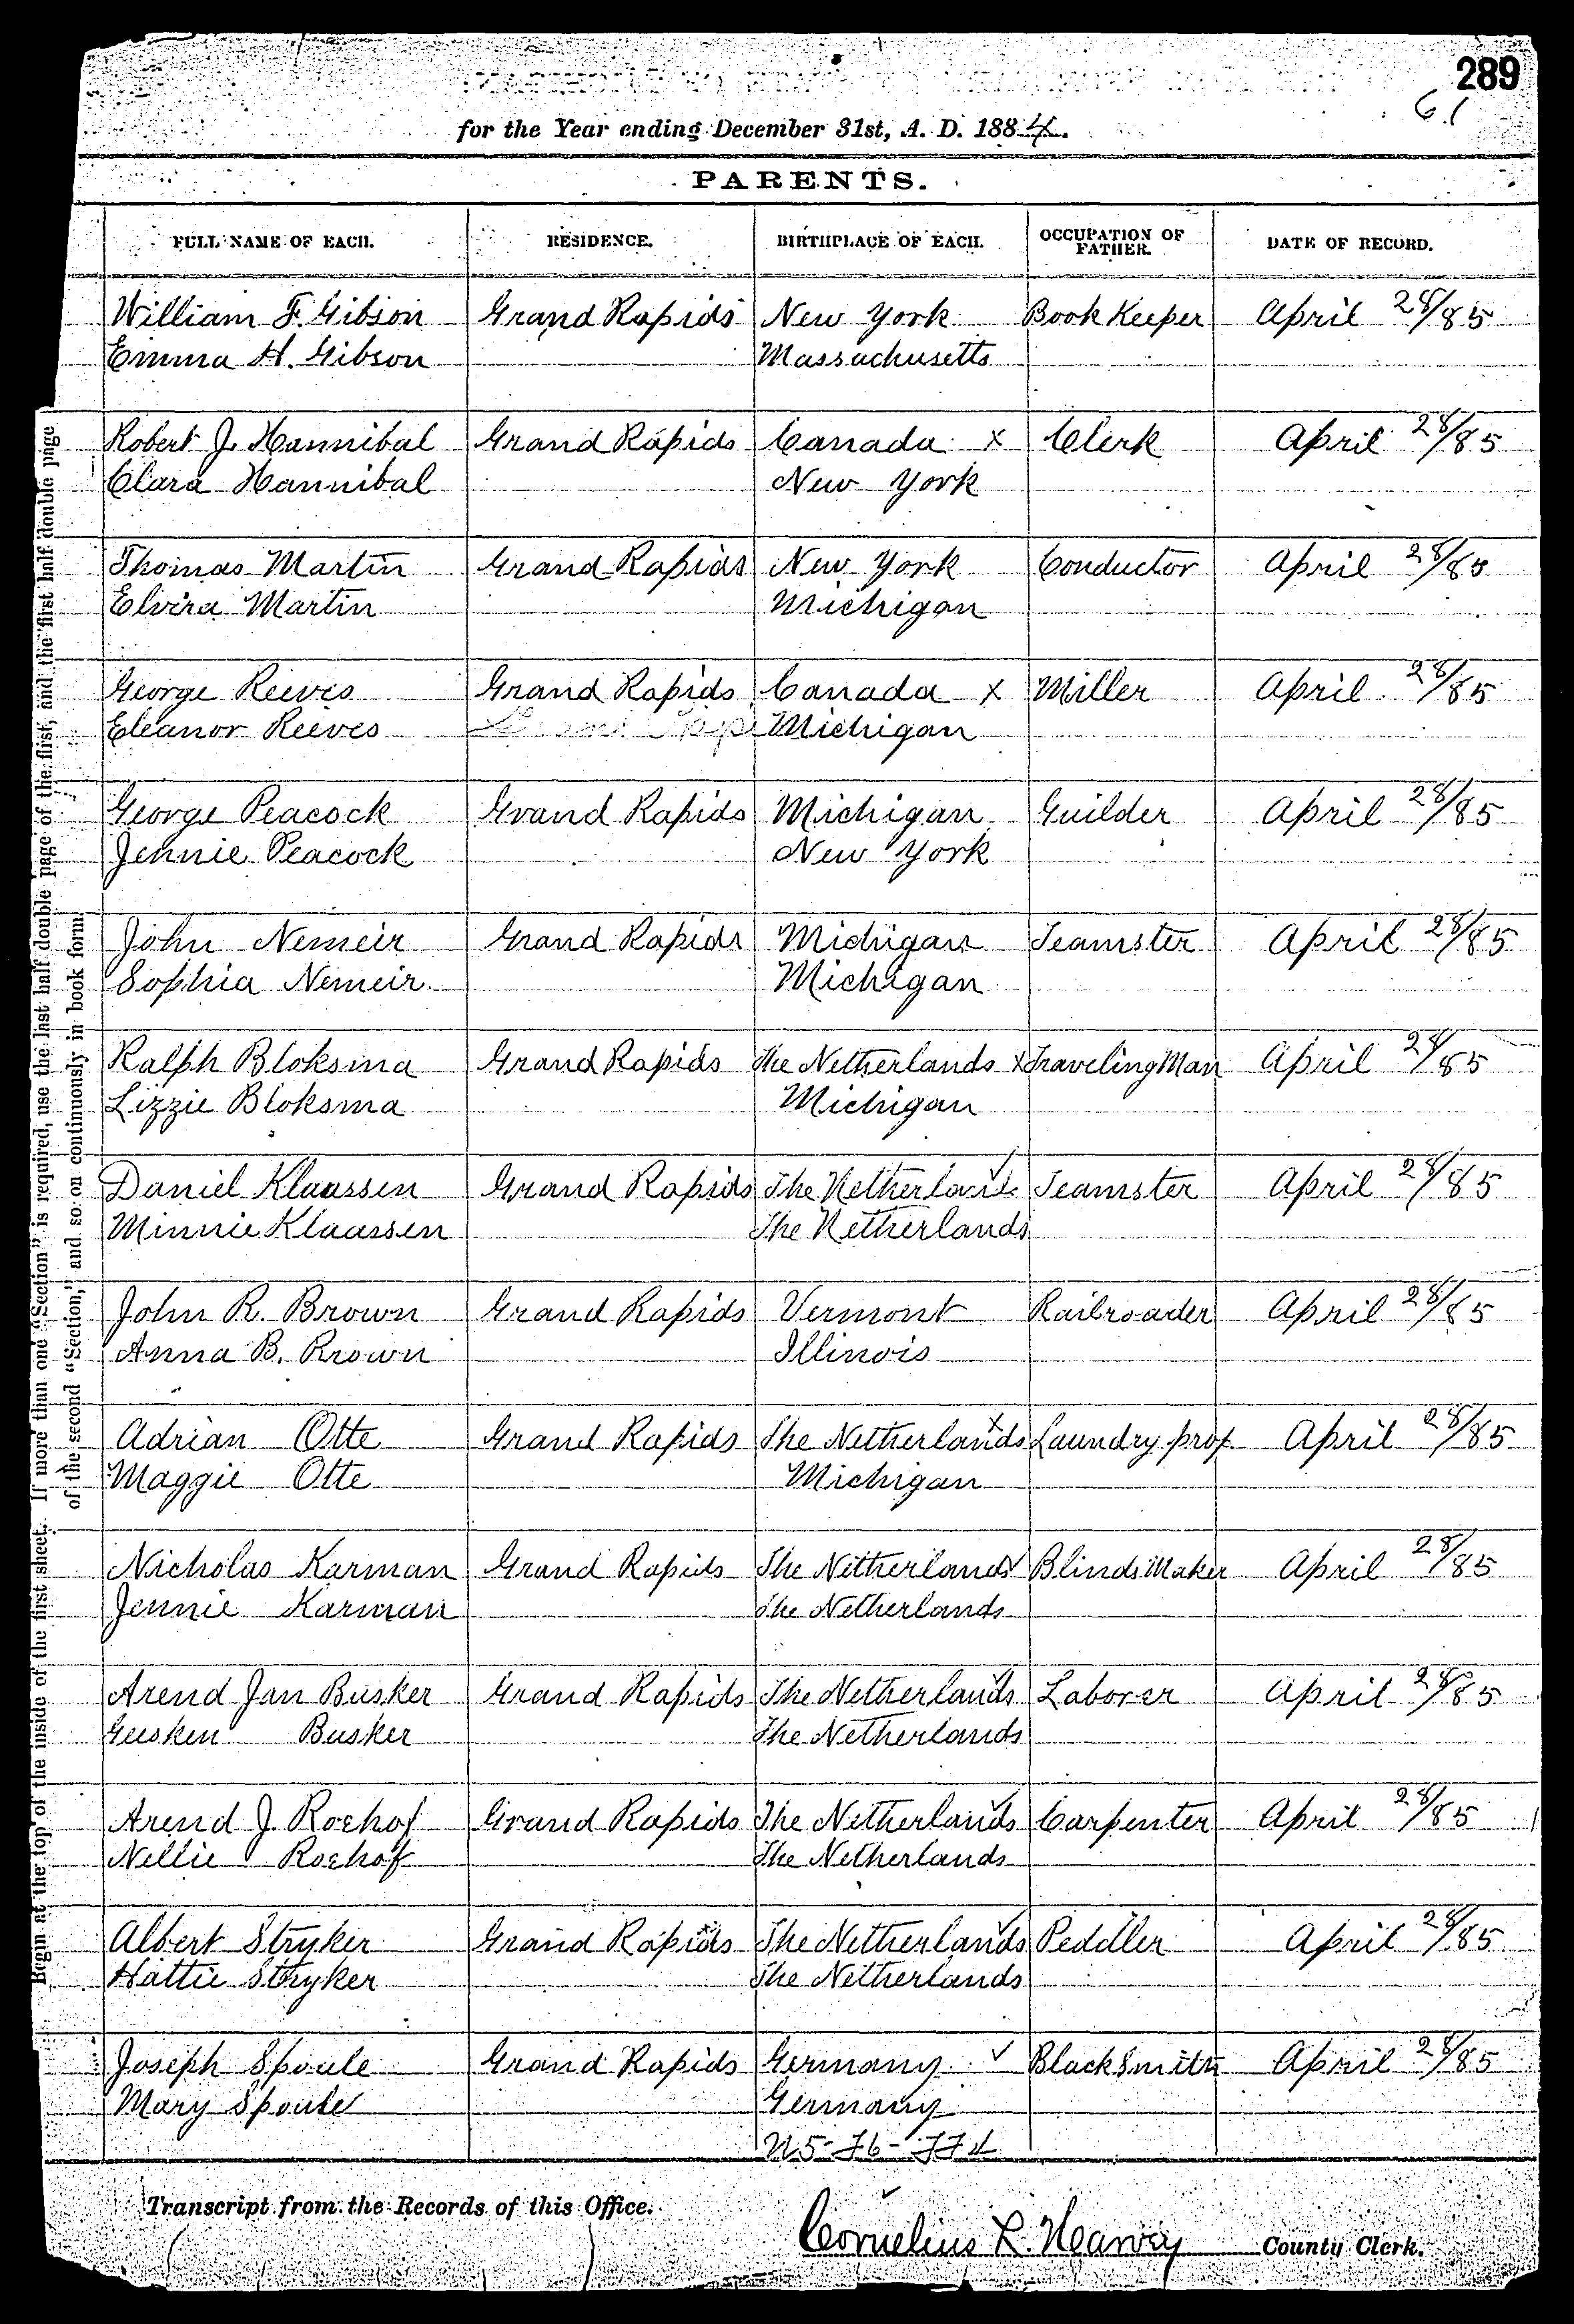 289
61
for the Year ending December 31st, A. D. 1884.
PARENTS.
FULL NAME OF EACH. RESIDENCE. BIRTHPLACE OF EACH. OCCUPATION OF FATHER. DATE OF RECORD.
William F. Gibson Grand Rapids New York Book Keeper April 28/85
Emma H. Gibson Massachusetts
Robert J. Hannibal Grand Rapids Canada x Clerk April 28/85
Clara Hannibal New York
Thomas Martin Grand Rapids New York Conductor April 28/85
Elvira Martin Michigan
George Reeves Grand Rapids Canada x Miller April 28/85
Eleanor Reeves Michigan
George Peacock Grand Rapids Michigan Guilder April 28/85
Jennie Peacock New York
John Nemeir Grand Rapids Michigan Teamster April 28/85
Sophia Nemeir Michigan
Ralph Bloksma Grand Rapids The Netherlands x Traveling Man April 28/85
Lizzie Bloksma Michigan
Daniel Klaassen Grand Rapids The Netherlands Teamster April 28/85
Minnie Klaassen The Netherlands
John R. Brown Grand Rapids Vermont Railroader April 28/85
Anna B. Brown Illinois
Adrian Otte Grand Rapids The Netherlands x Laundry prop April 28/85
Maggie Otte Michigan
Nicholas Karman Grand Rapids The Netherlands Blinds Maker April 28/85
Jennie Karman The Netherlands
Arend Jan Busker Grand Rapids The Netherlands Laborer April 28/85
Geesken Busker The Netherlands
Arend J. Roehof Grand Rapids The Netherlands Carpenter April 28/85
Nellie Roehof The Netherlands
Albert Stryker Grand Rapids The Netherlands Peddler April 28/85
Hattie Stryker The Netherlands
Joseph Spoule Grand Rapids Germany Black Smith April 28/85
Mary Spoule Germany
Transcript from the Records of this Office.
Cornelius L. Harvey County Clerk.
Begin at the top of the inside of the first sheet. If more than one "Section" is required, use the last half double page of the first, and the first half double page
of the second "Section," and so on continuously in book form.